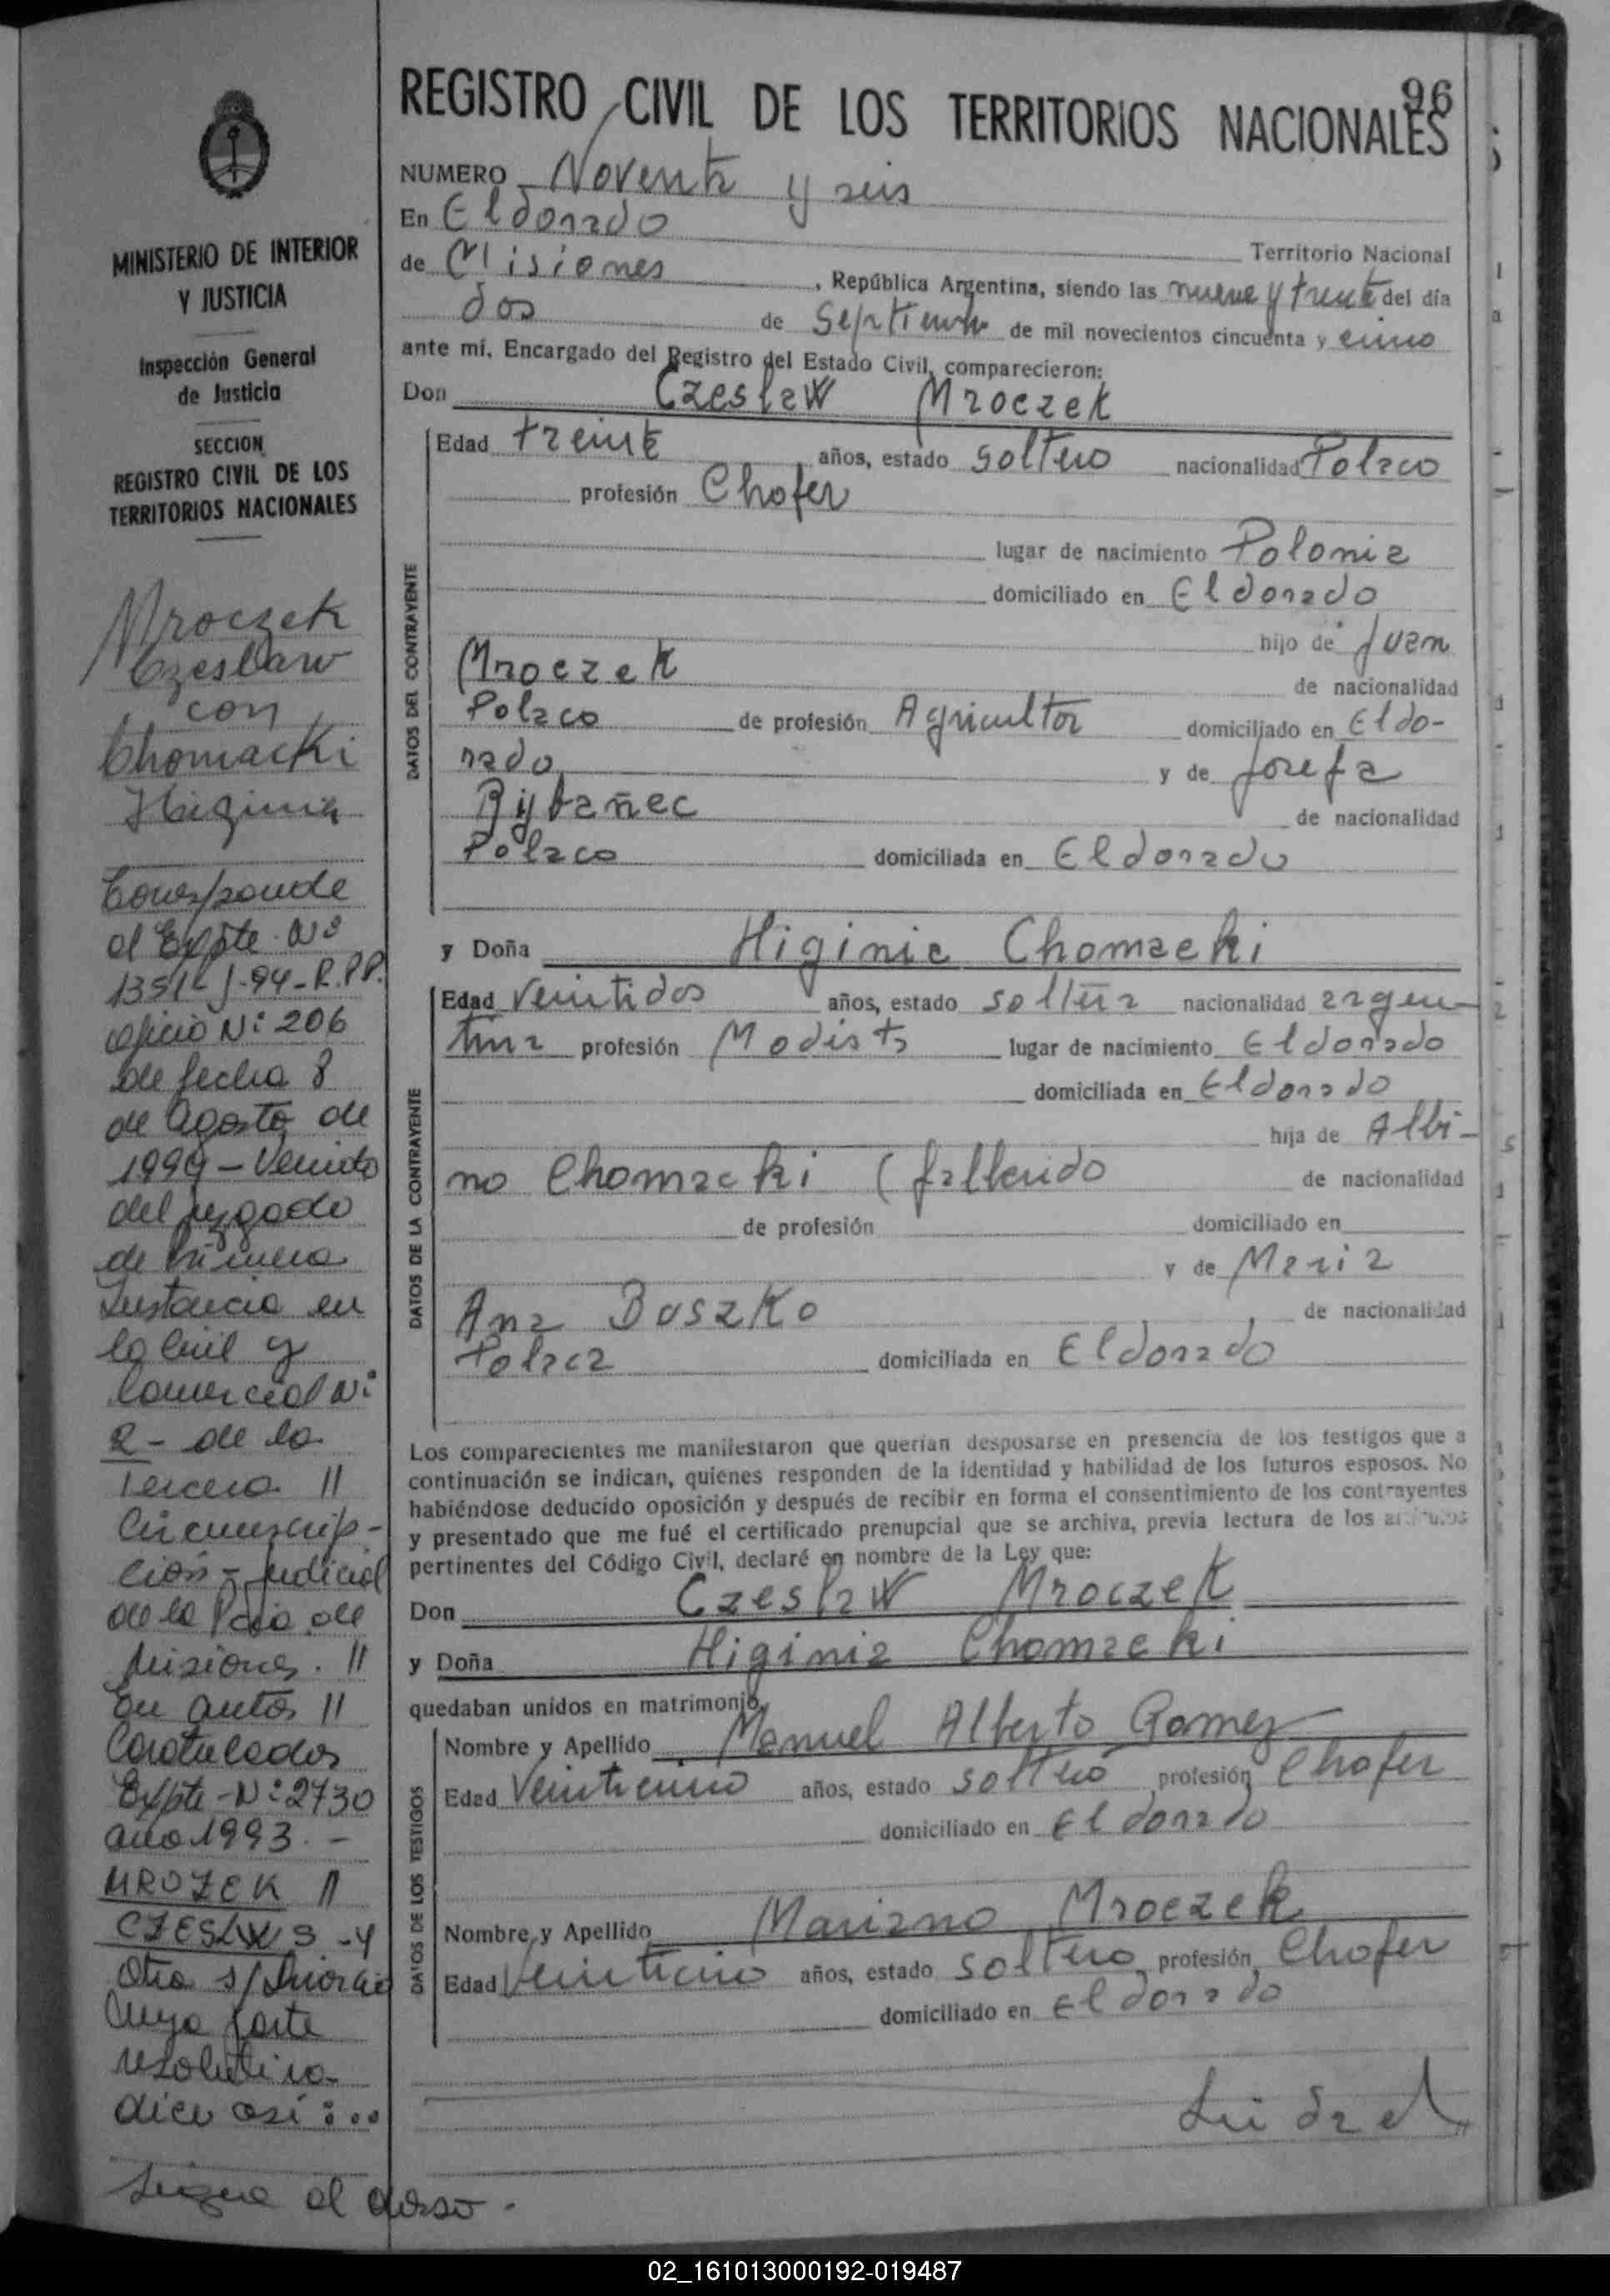 96
REGISTRO CIVIL DE LOS TERRITORIOS NACIONALES
MINISTERIO DE INTERIOR
Y JUSTICIA
Inspección General
de Justicia
SECCION
REGISTRO CIVIL DE LOS
TERRITORIOS NACIONALES
Mroczek
Czeslaw
con
Chomacki
Higinia
Corresponde
al Expte. Nº
de fecha 8
de Agosto de
1994 - Venido
del juzgado
de Primera
Instancia en
lo Civil y
Comercial Nº
2 - de la
Tercera //
Circunscrip-
ción - Judicial
de la Pcia. de
Misiones. //
En autos //
Caratulados
Expte - Nº 2730
año 1993. -
MROZEK //
- Y
Otra s/ Divorcio
Cuya parte
resolutiva
dice así : ...
Sigue al dorso.
NUMERO Noventa y seis
En Eldorado
Territorio Nacional
de Misiones, República Argentina, siendo las nueve y treinta del día
dos de Septiembre de mil novecientos cincuenta y cinco
ante mí, Encargado del Registro del Estado Civil, comparecieron:
Don Czeslaw Mroczek
DATOS DEL CONTRAYENTE
Edad treinta años, estado soltero nacionalidad Polaco
profesión Chofer
lugar de nacimiento Polonia
domiciliado en Eldorado
hijo de Juan
Mroczek
de nacionalidad
Polaco de profesión Agricultor domiciliado en Eldo-
rado y de Josefa
de nacionalidad
Polaco domiciliada en Eldorado
y Doña Higinia Chomacki
DATOS DE LA CONTRAYENTE
Edad veintidos años, estado soltera nacionalidad argen-
tina profesión Modista lugar de nacimiento Eldorado
domiciliada en Eldorado
hija de Albi-
no Chomacki (fallecido de nacionalidad
de profesión domiciliado en
y de Maria
Ana Buszko, de nacionalidad
Polaca domiciliada en Eldorado
Los comparecientes me manifestaron que querían desposarse en presencia de los testigos que a
continuación se indican, quienes responden de la identidad y habilidad de los futuros esposos. No
habiéndose deducido oposición y después de recibir en forma el consentimiento de los contrayentes
y presentado que me fué el certificado prenupcial que se archiva, previa lectura de los artículos
pertinentes del Código Civil, declaré en nombre de la Ley que:
Don Czeslaw Mroczek
y Doña Higinia Chomacki
quedaban unidos en matrimonio,
DATOS DE LOS TESTIGOS
Nombre y Apellido Manuel Alberto Gomez
Edad Veinticinco años, estado soltero profesión Chofer
domiciliado en Eldorado
Nombre y Apellido Mariano Mroczek
Edad Veinticinco años, estado soltero profesión Chofer
domiciliado en Eldorado
02_161013000192-019487